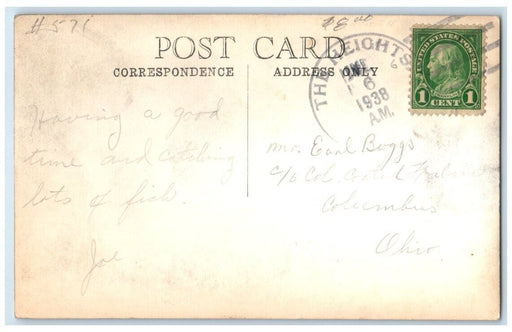 #571
POST CARD
CORRESPONDENCE
ADDRESS ONLY
THE HEIGHTS
6
1938
A.M.
UNITED STATES POSTAGE
FRANKLIN
1 CENT 1
Having a good
time and catching
lots of fish.
Joe
Mrs. Earl Boggs
c/o Col.
Columbus
Ohio.